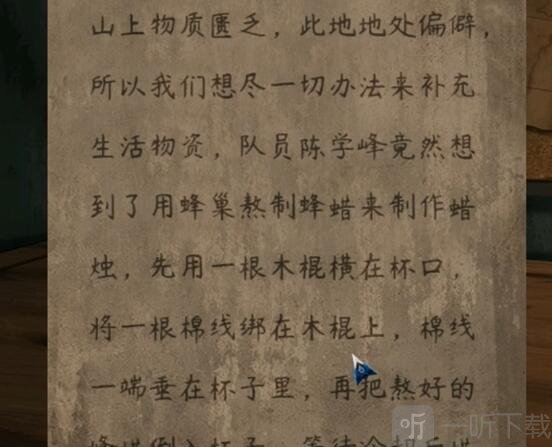 山上物质匮乏，此地地处偏僻，
所以我们想尽一切办法来补充
生活物资，队员陈学峰竟然想
到了用蜂巢熬制蜂蜡来制作蜡
烛，先用一根木棍横在杯口，
将一根棉线绑在木棍上，棉线
一端垂在杯子里，再把熬好的
听 一听下载